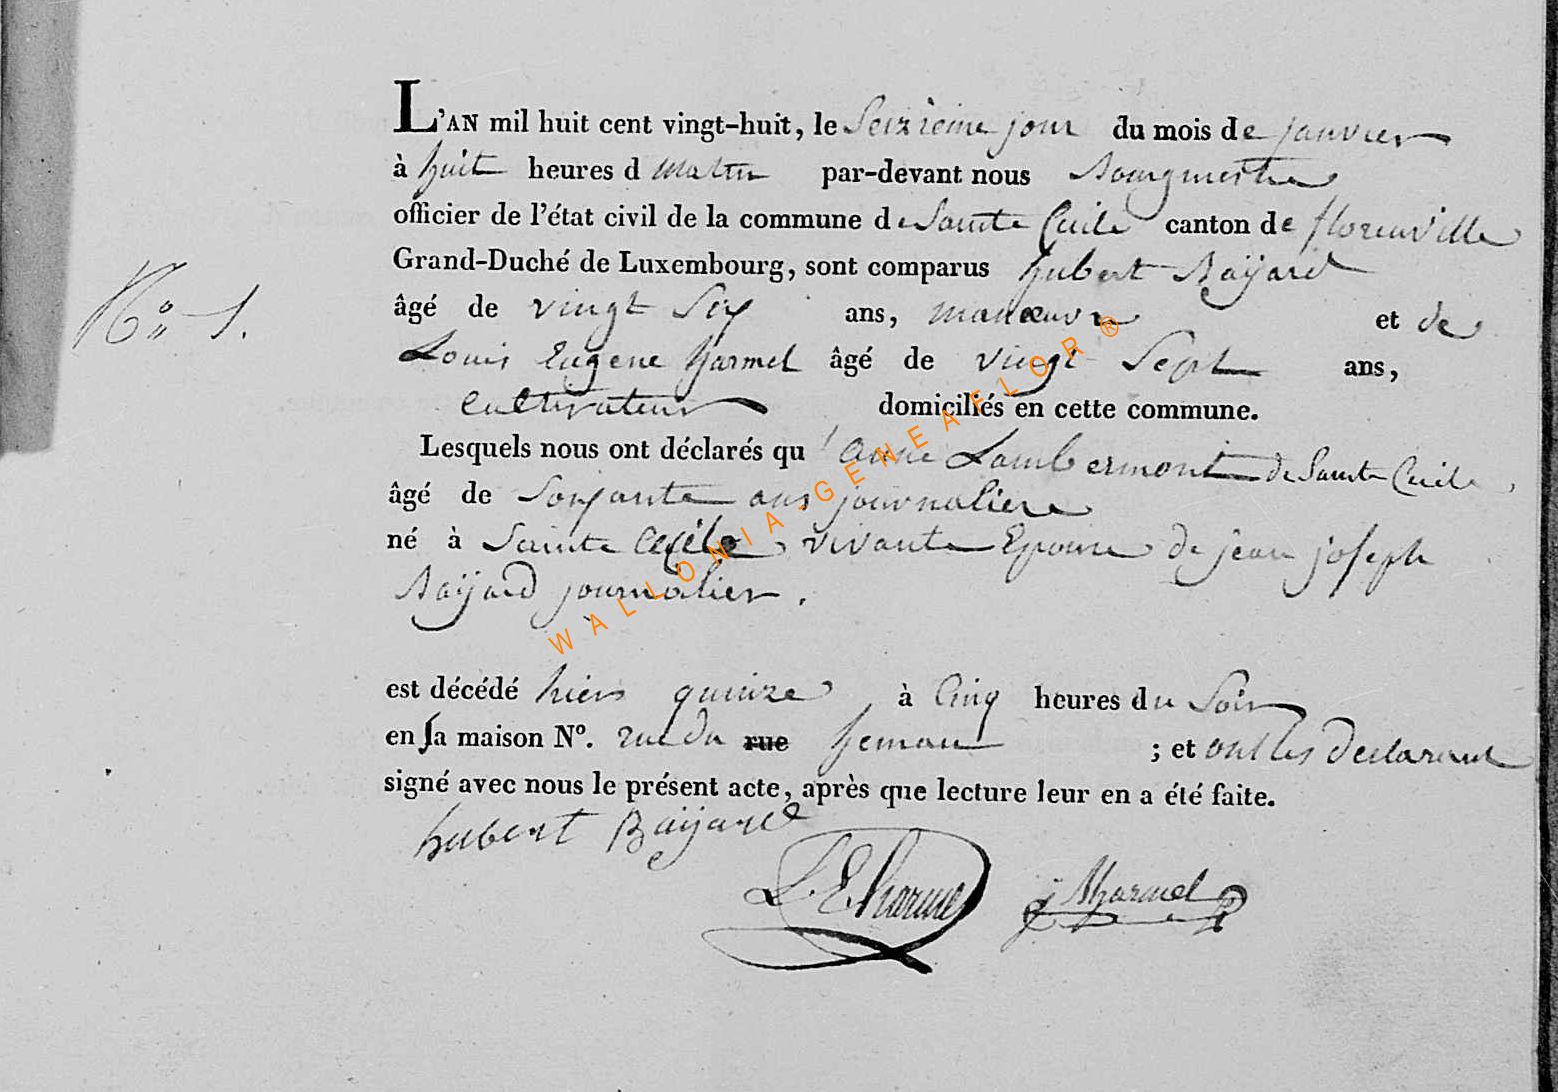 L'AN mil huit cent vingt-huit, le Seizieme jour du mois de janvier
à huit heures d matin par-devant nous Bourgmestre
officier de l'état civil de la commune de Sainte Cecile canton de florenville
Grand-Duché de Luxembourg, sont comparus hubert Baÿard
âgé de vingt Six ans, manœuvre et de
N° 1.
Louis Eugene harmel âgé de vingt Sept ans,
cultivateur domiciliés en cette commune.
Lesquels nous ont déclarés qu'anne Lambermont de Sainte Cecile,
âgé de Soixante ans journaliere
né à Sainte Cecile vivante Epouse de jean joseph
Baÿard journalier.
est décédé hiers quinze à Cinq heures du Soir
en Sa maison N°. rue du rue ; et ont les declarant
signé avec nous le présent acte, après que lecture leur en a été faite.
hubert Baÿard
L. E. harmel
harmel
WALLONIA-GENEAFLOR ®